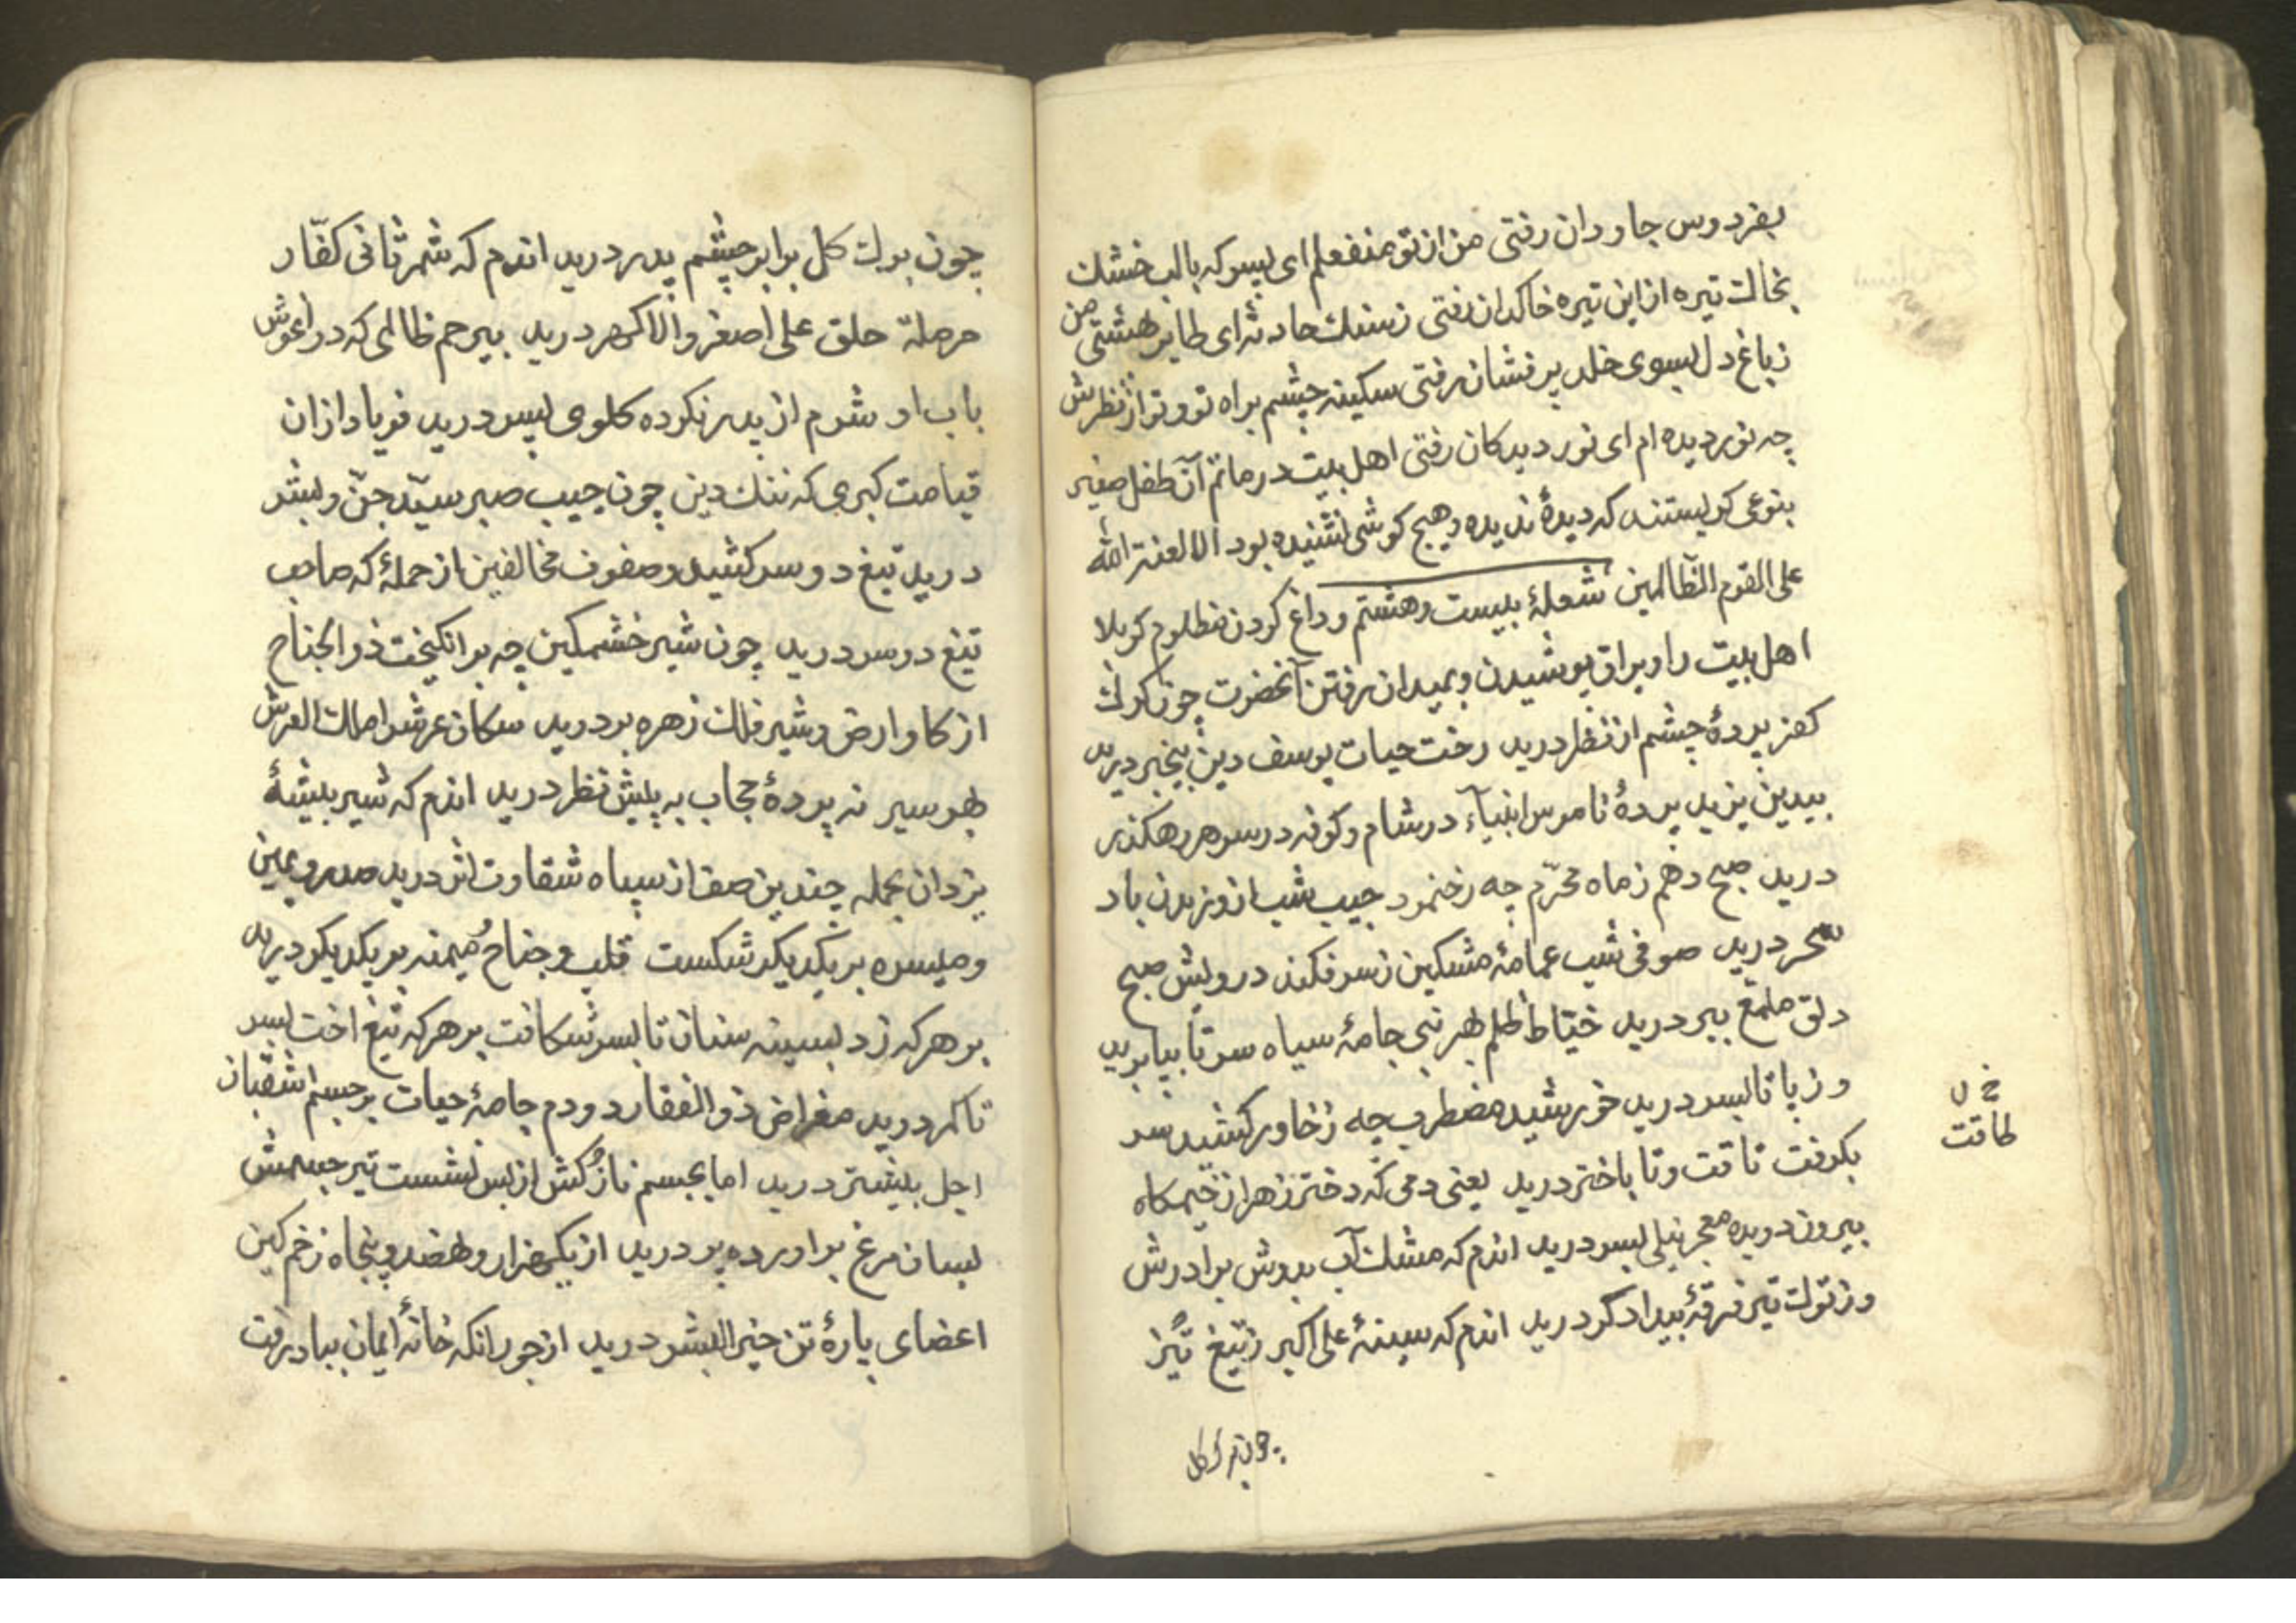 بفردوس جاودان رفتی من از تو منفعلم ای پسر که با لب خشك
بخاك تیره از این تیره خاکدان رفتی ز سنك حادثه ای طایر بهشتی من
ز باغ دل بسوی خلد پر فشان رفتی سکینه چشم براه تو و تو از نظرش
چه نور دیده ام ای نور دیدکان رفتی اهل بیت در ماتم آن طفل صغیر
بنوعی کریستند که دیدۀ ندیده و هیچ کوشی نشنیده بود الا لعنة الله
علی القوم الظالمین شعلۀ بیست و هشتم وداع کردن مظلوم کربلا
اهل بیت را و یراق پوشیدن و بمیدان رفتن آنحضرت چون کرك
کفر پردۀ چشم از نظر درید رخت حیات یوسف دین بیخبر درید
بیدین یزید پردۀ ناموس انبیآء در شام و کوفه در سر هر رهکذر
درید صبح دهم ز ماه محرّم چه رخنمود جیب شب از وزیدن باد
سحر درید صوفی شب عمامۀ مشکین ز سر فکند درویش صبح
دلق ملمّع ببر درید خیّاط ظلم بهر نبی جامۀ سیاه سر تا بپا برید
و ز پا تا بسر درید خورشید مضطرب چه ز خاور کشید سر
بکرفت تاقت و تا باختر درید یعنی دمی که دختر زهرا ز خیمکاه
بیرون دویده معجر نیلی بسر درید اندم که مشك آب بدوش برادرش
و ز نوك تیر فرقۀ بیدادکر درید اندم که سینۀ علی اکبر ز تیغ تیز
خ ل
طاقت
چون برك کل
چون برك کل برابر چشم پدر درید اندم که شمر ثانی کفّار
حرمله حلق علی اصغر والا کهر درید بیرحم ظالمی که در اغوش
باب او شرم از پدر نکرده کلوی پسر درید فریاد از ان
قیامت کبری که ننك دین چون جیب صبر سیّد جنّ و بشر
درید تیغ دو سر کشید و صفوف مخالفین از حملۀ که صاحب
تیغ دو سر درید چون شیر خشمکین چه بر انکیخت ذوالجناح
از کاو ارض و شیر فلك زهره بر درید سکان عرش را ملك العرش
بهر سیر نه پردۀ حجاب به پیش نظر درید اندم که شیر بیشۀ
یزدان بحمله چندین صف از سپاه شقاوت اثر درید صدر و یمین
و میسره بر یکدیکر شکست قلب و جناح و میمنه بر یکدیکر درید
بر هر که زد بسینه سنان تا بسر شکافت بر هر که تیغ اخت بسر
تا کمر درید مقراض ذوالفقار دو دم جامۀ حیات بر جسم اشقیا ز
اجل بیشتر درید اما بجسم نازکش از بس نشست تیر جسمش
بسان مرغ بر اورده پر درید از یکهزار و نهصد و پنجاه زخم کین
اعضای پارۀ تن خیر البشر درید از جور انکه خانۀ ایمان بباد رفت